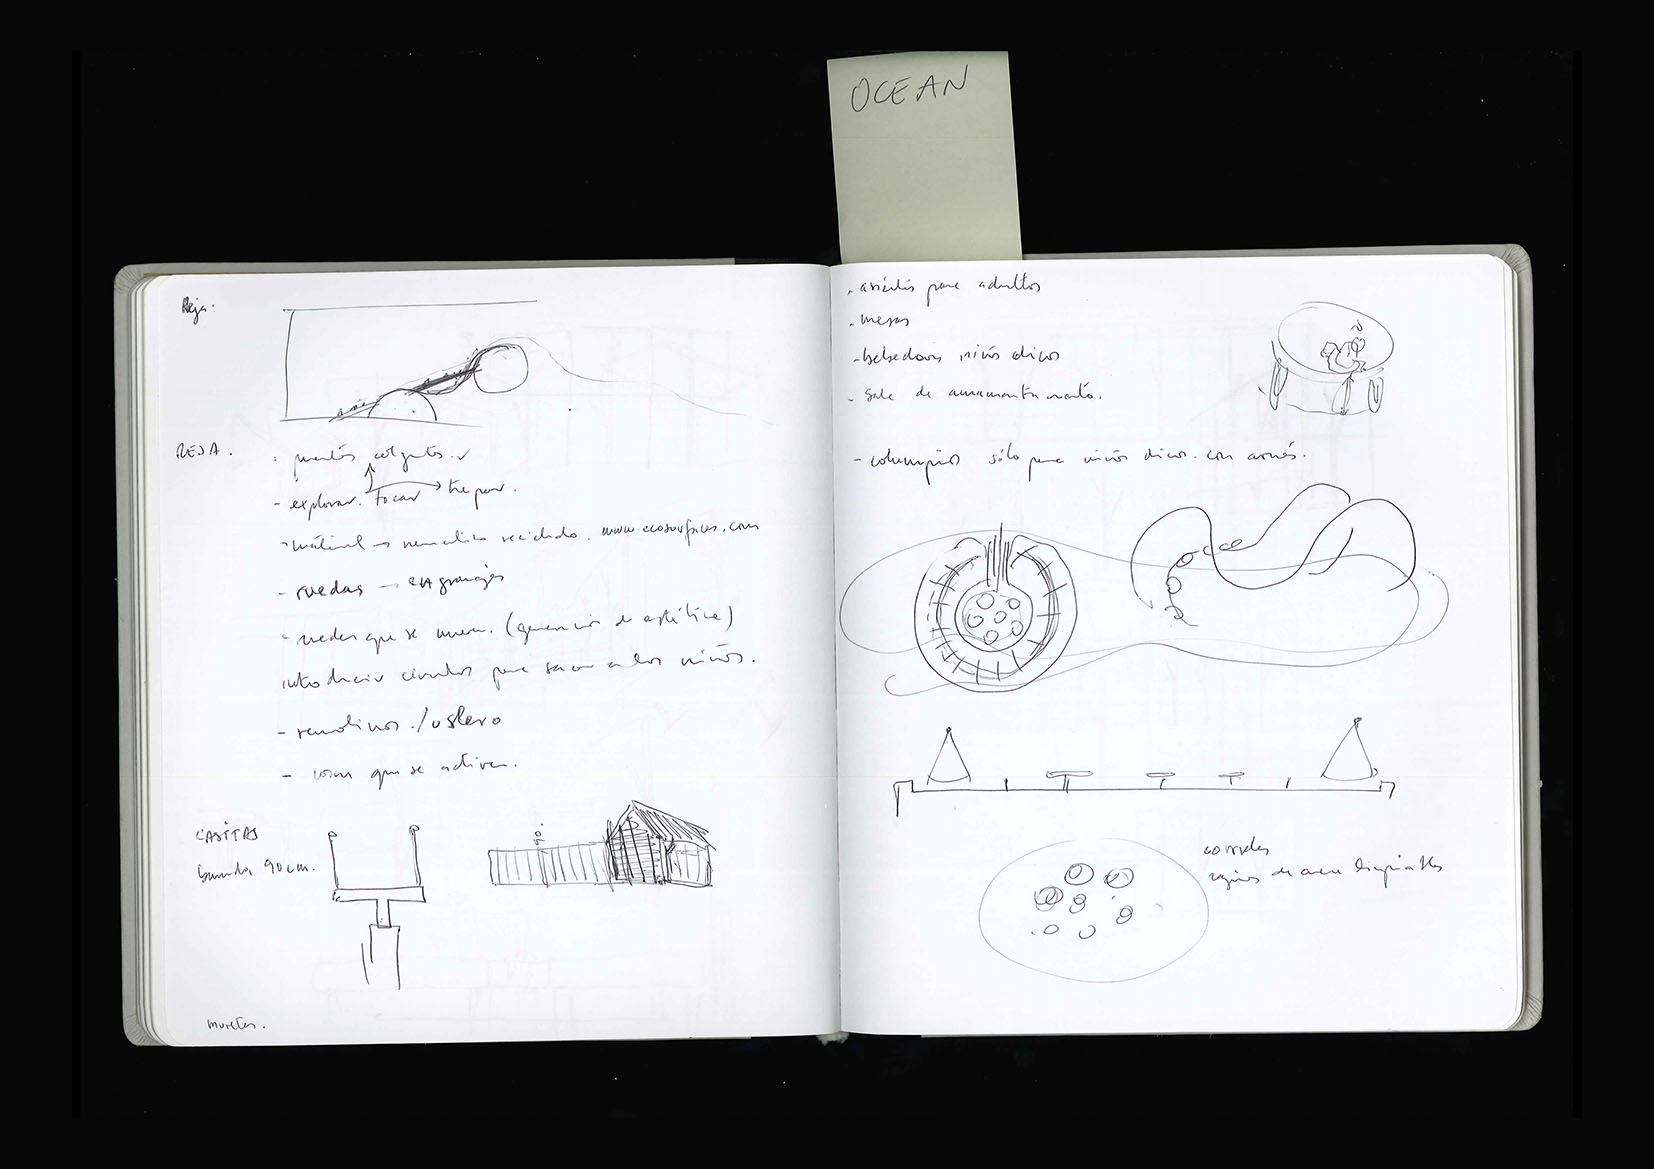 OCEAN
Reja:
REJA.
puentes colgantes.
- explorar. tocar trepar.
- material → neumático reciclado. www.ecosurfaces.com
- ruedas → engranajes
que se mueven. (generación de estática)
introducir círculos para sacar a los niños.
- remolinos. /
- cosas que se activen.
CASITAS
baranda 90 cm.
90.
muretes.
- asientos para adultos
- mesas
- bebederos niños chicos
- Sala de amamantamiento.
- columpios sólo para niños chicos. con arnés.